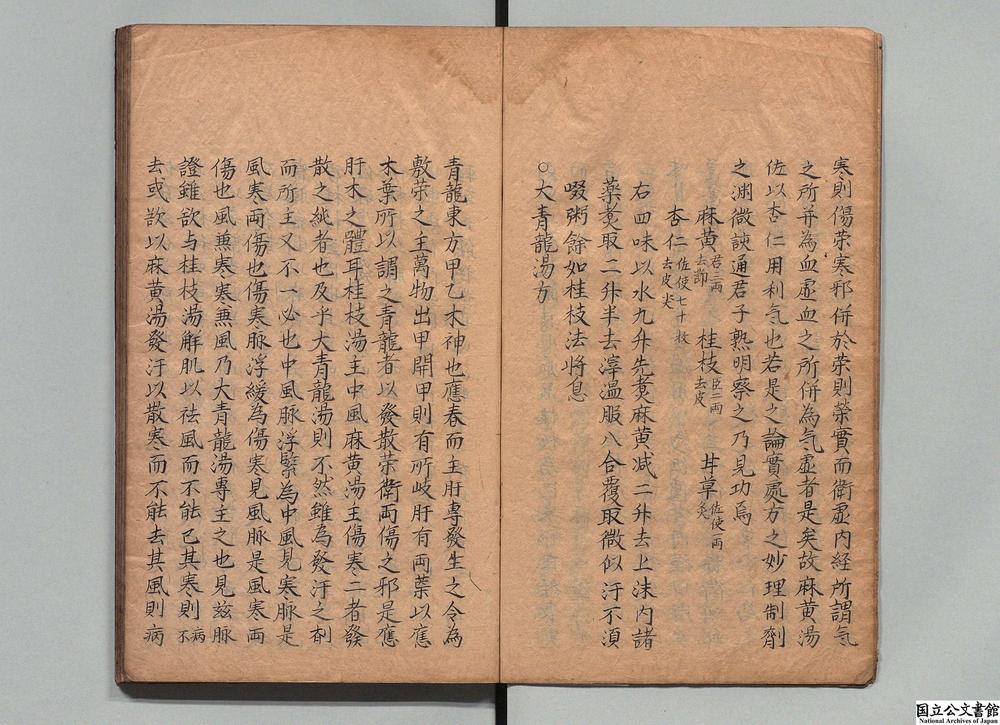 寒則傷荣寒邪併於荣則榮實而衛虛内経所謂气
之所并為血虛血之所併為气虛者是矣故麻黄湯
佐以杏仁用利气也若是之論實處方之妙理制劑
之渊微該通君子熟明察之乃見功焉
麻黄君三両去節 桂枝臣二両去皮 甘草佐使一両炙
杏仁佐使七十枚去皮尖
右四味以水九升先煑麻黄减二升去上沫内諸
藥煑取二升半去滓温服八合覆取微似汗不須
啜粥餘如桂枝法将息
○大青龍湯方
青龍東方甲乙木神也應春而主肝專發生之令為
敷荣之主萬物出甲開甲則有所岐肝有両葉以應
木葉所以謂之青龍者以發散荣衛両傷之邪是應
肝木之體耳桂枝湯主中風麻黄湯主傷寒二者發
散之純者也及乎大青龍湯則不然雖為發汗之剤
而所主又不一必也中風脉浮緊為中風見寒脉是
風寒両傷也傷寒脉浮緩為傷寒見風脉是風寒両
傷也風兼寒寒兼風乃大青龍湯專主之也見兹脉
證雖欲与桂枝湯解肌以祛風而不能已其寒則病不
去或欲以麻黄湯發汗以散寒而不能去其風則病
国立公文書館
National Archives of Japan